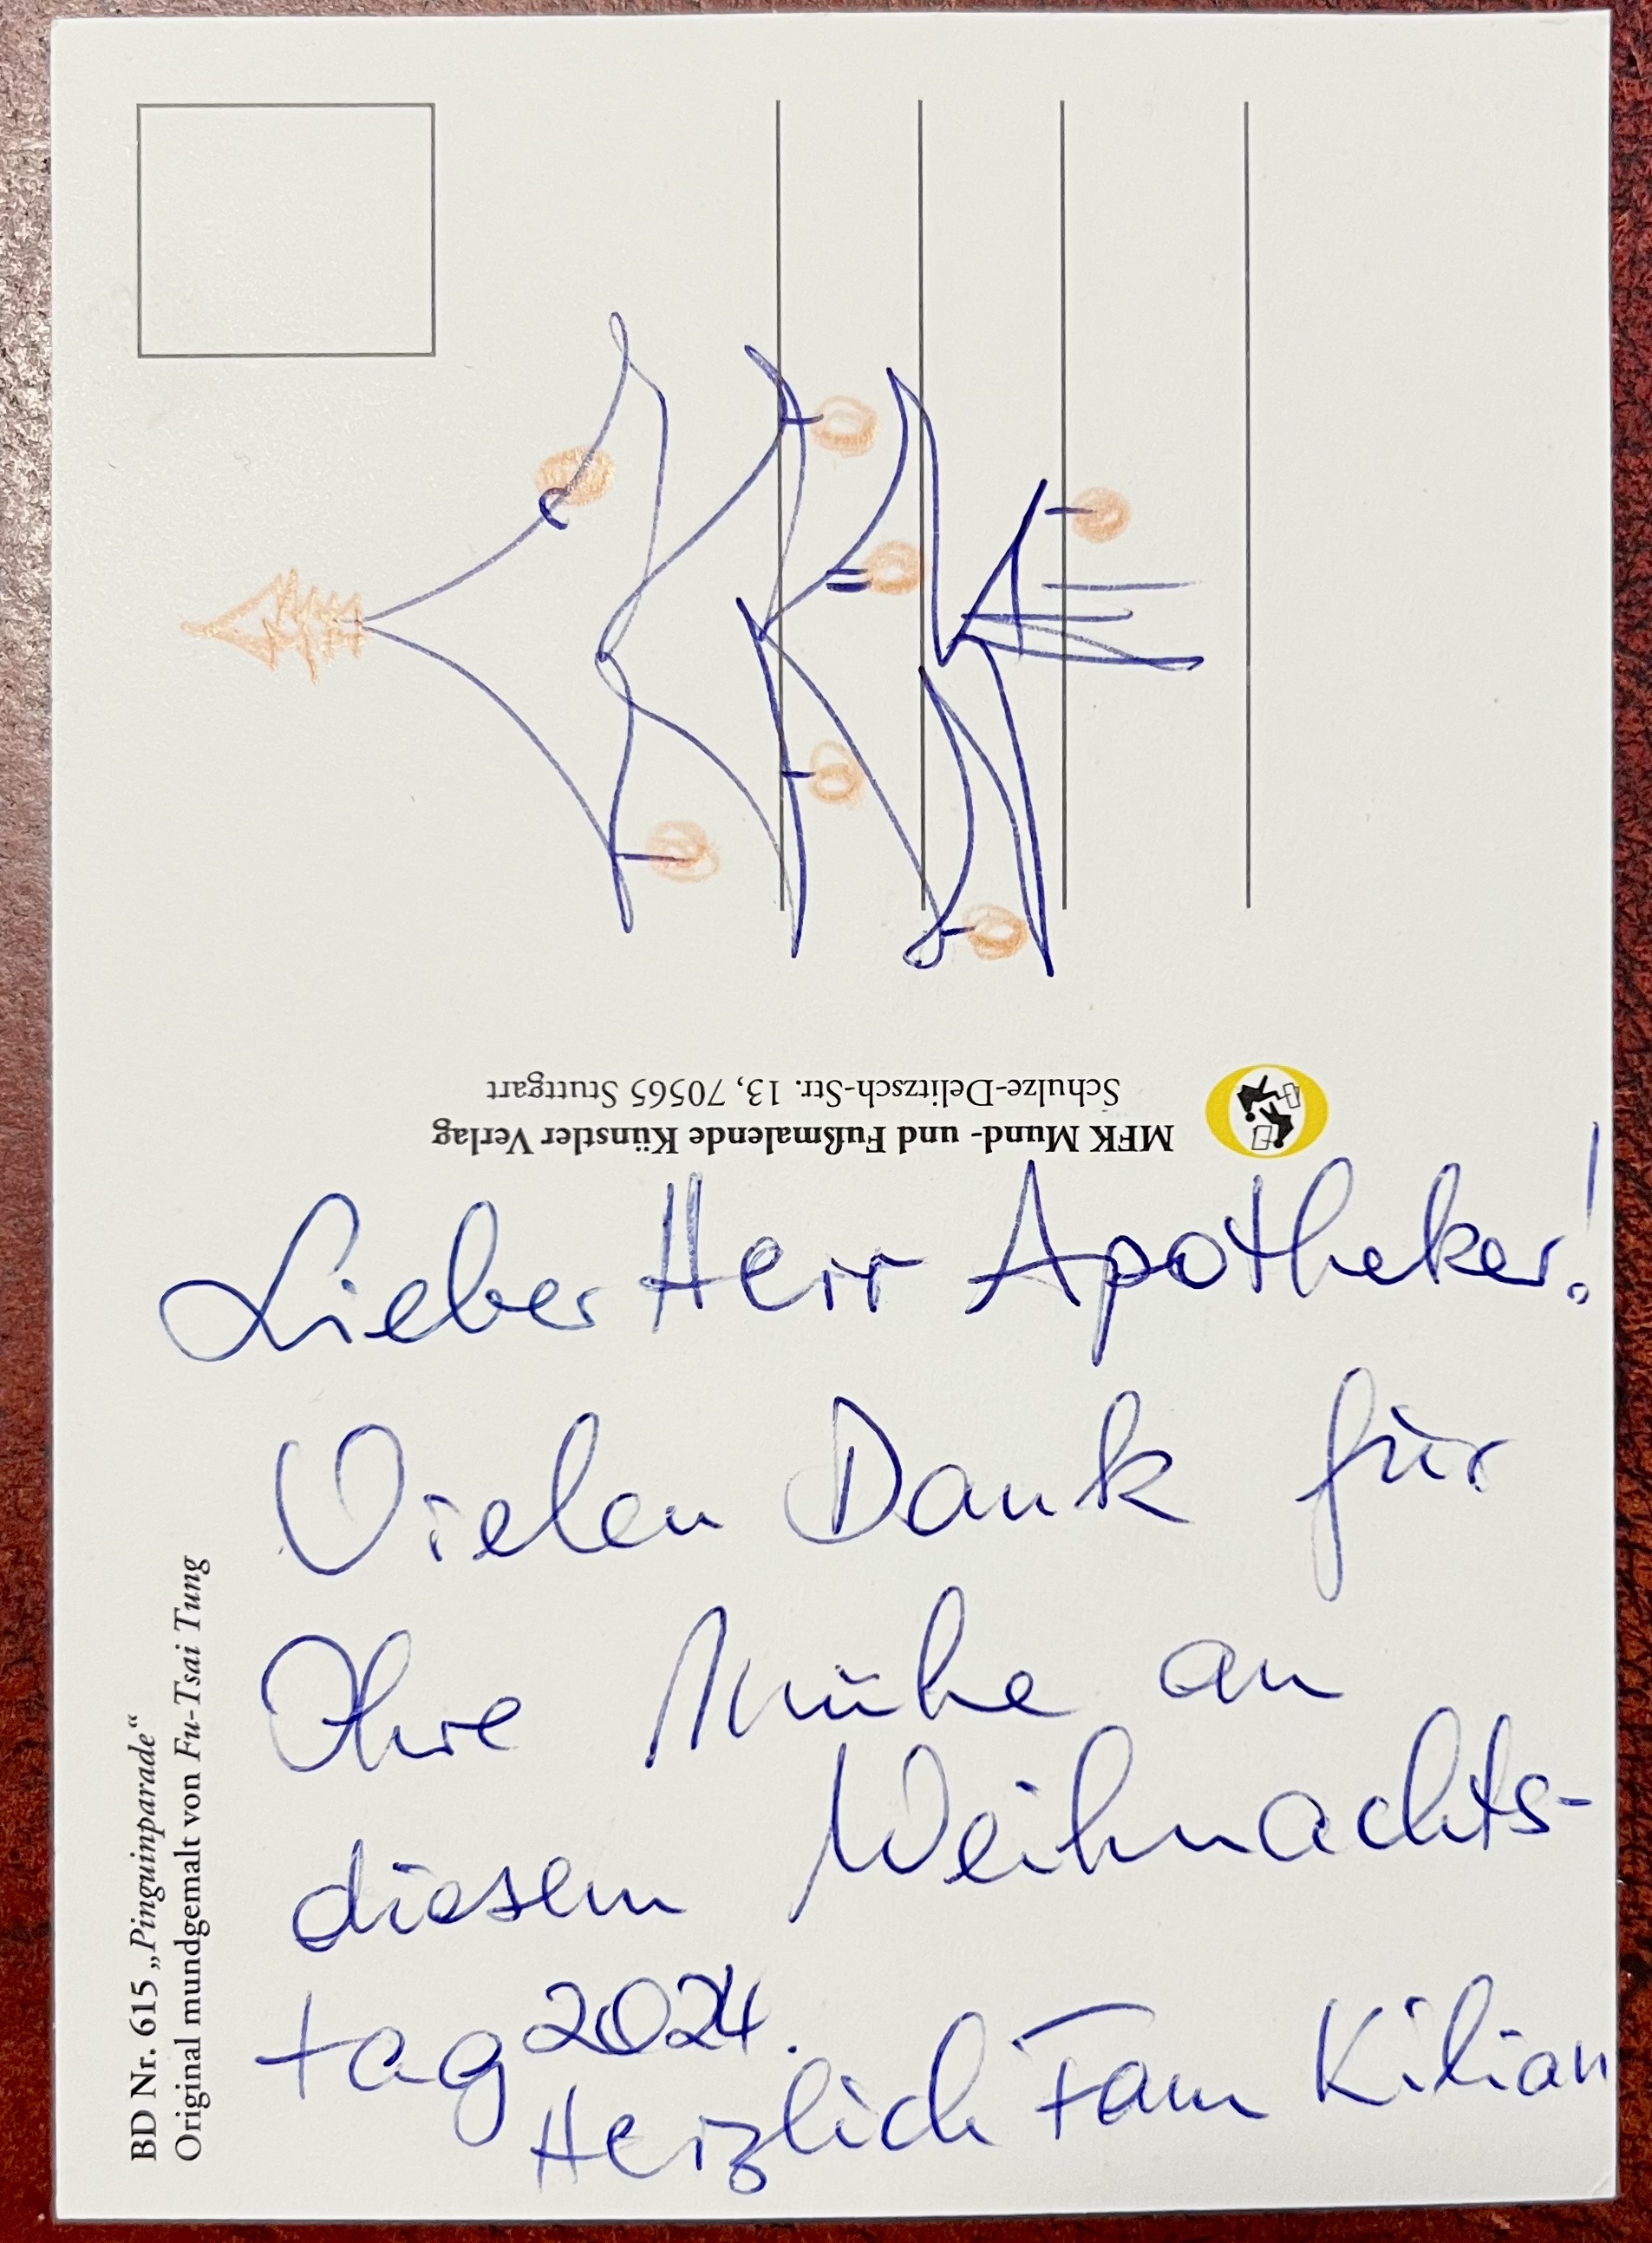 MFK Mund- und Fußmalende Künstler Verlag
Schulze-Delitzsch-Str. 13, 70565 Stuttgart
Lieber Herr Apotheker!
Vielen Dank für
Ihre Mühe an
diesem Weihnachts-
tag 2024.
Herzlich Fam Kilian
BD Nr. 615 „Pinguinparade“
Original mundgemalt von Fu-Tsai Tung